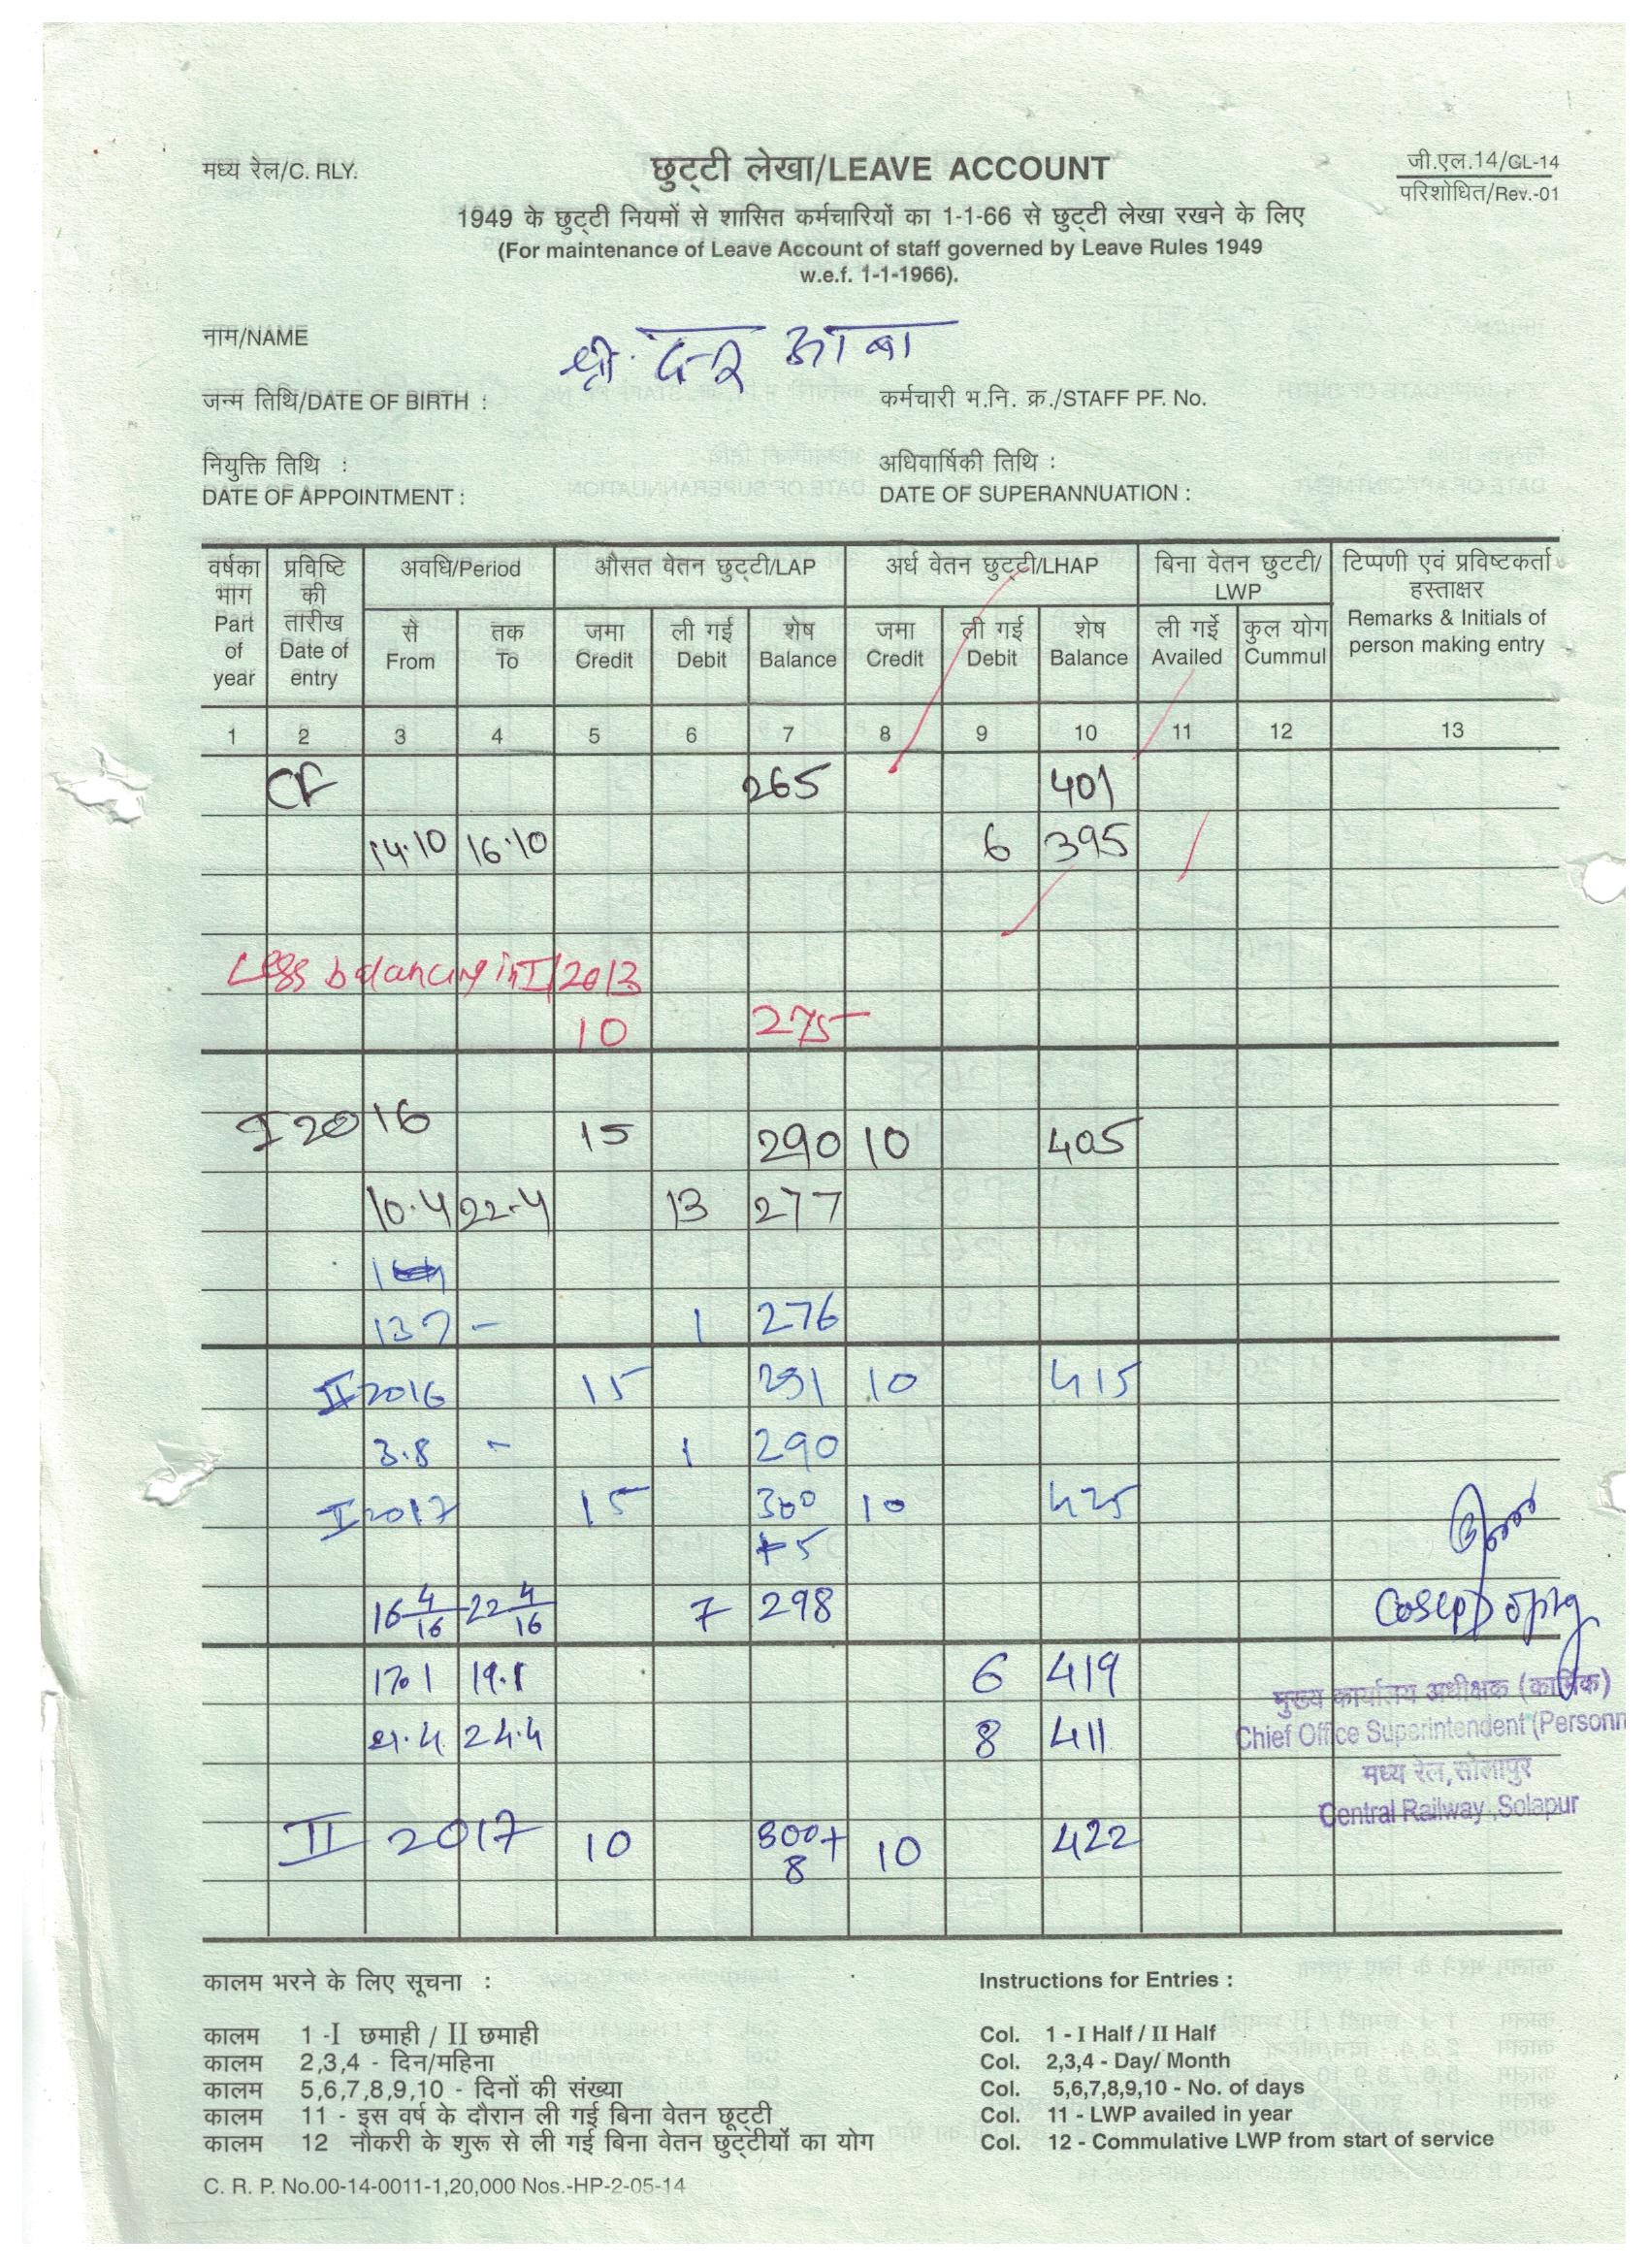 मध्य रेल/C. RLY.
छुट्टी लेखा/LEAVE ACCOUNT
जी.एल.14/GL-14
परिशोधित/Rev.-01
1949 के छुट्टी नियमों से शासित कर्मचारियों का 1-1-66 से छुट्टी लेखा रखने के लिए
(For maintenance of Leave Account of staff governed by Leave Rules 1949
w.e.f. 1-1-1966).
नाम/NAME श्री.
जन्म तिथि/DATE OF BIRTH : कर्मचारी भ.नि. क्र./STAFF PF. No.
नियुक्ति तिथि : अधिवार्षिकी तिथि :
DATE OF APPOINTMENT : DATE OF SUPERANNUATION :
वर्षका भाग Part of year
प्रविष्टि की तारीख Date of entry
अवधि/Period
से From
तक To
औसत वेतन छुट्टी/LAP
जमा Credit
ली गई Debit
शेष Balance
अर्ध वेतन छुट्टी/LHAP
जमा Credit
ली गई Debit
शेष Balance
बिना वेतन छुटटी/LWP
ली गई Availed
कुल योग Cummul
टिप्पणी एवं प्रविष्टकर्ता हस्ताक्षर
Remarks & Initials of person making entry
1 2 3 4 5 6 7 8 9 10 11 12 13
CF 265 401
14.10 16.10 6 395
Less balancing in I/2013
10 275
I 2016 15 290 10 405
10.4 22.4 13 277
13 7 - 1 276
II 2016 15 291 10 415
3.8 - 1 290
I 2017 15 300 10 425
+5
16 4/16 22 4/16 7 298
17.1 19.1 6 419
21.4 24.4 8 411
मुख्य कार्यालय अधीक्षक (कार्मिक)
Chief Office Superintendent (Personn
मध्य रेल, सोलापुर
Central Railway, Solapur
II 2017 10 300+ 10 422
8
कालम भरने के लिए सूचना :
कालम 1 -I छमाही / II छमाही
कालम 2,3,4 - दिन/महिना
कालम 5,6,7,8,9,10 - दिनों की संख्या
कालम 11 - इस वर्ष के दौरान ली गई बिना वेतन छूट्टी
कालम 12 नौकरी के शुरू से ली गई बिना वेतन छुट्टीयों का योग
Instructions for Entries :
Col. 1 - I Half / II Half
Col. 2,3,4 - Day/ Month
Col. 5,6,7,8,9,10 - No. of days
Col. 11 - LWP availed in year
Col. 12 - Commulative LWP from start of service
C. R. P. No.00-14-0011-1,20,000 Nos.-HP-2-05-14